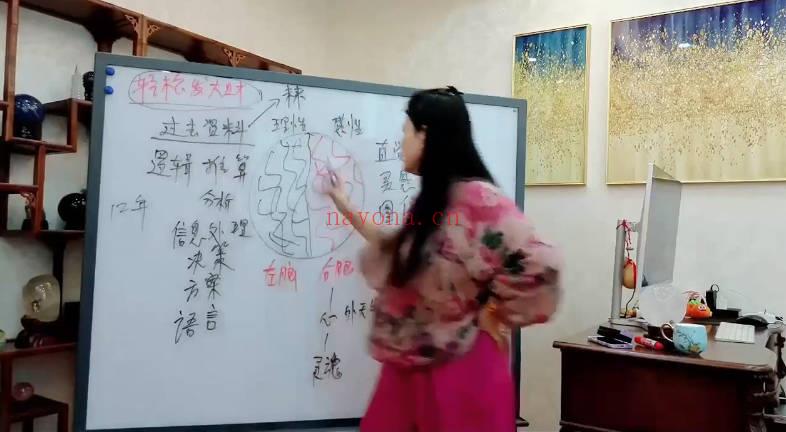 轻松发大财
过去资料
理性
感性
逻辑 推算
分析
12年
信息处理
决策
方案
语言
左脑
右脑
心 外天
灵魂
直
灵感
图
nayona.cn